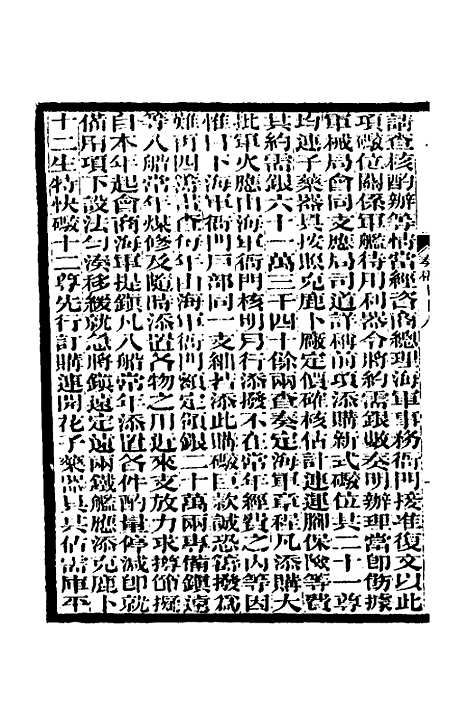 請查核酌辦等情當經咨商總理海軍事務衙門接准復文以此
項礮位關係軍艦待用利器令將約需銀數奏明辦理當卽飭據
軍械局會同支應局司道詳稱前項添購新式礮位共二十一尊
均連子藥器具按照克鹿卜廠定價確核估計連運腳保險等費
共約需銀六十一萬三千四十餘兩查奏定海軍章程凡添購大
批軍火應由海軍衙門核明另行添撥不在常年經費之內等因
惟目下海軍衙門戶部同一支絀若添此購礮巨款誠恐籌撥爲
難再四籌畫每年由海軍衙門額定領銀二十萬兩專備鎭遠
等八船常年煤修及隨時添置各物之用近來支放力求撙節擬
自本年起會商海軍提鎭凡八船常年添置各件酌量停減卽就
備用項下設法勻湊移緩就急將鎭遠定遠兩鐵艦應添克鹿卜
十二生特快礮十二尊先行訂購連開花子藥器具共估需庫平